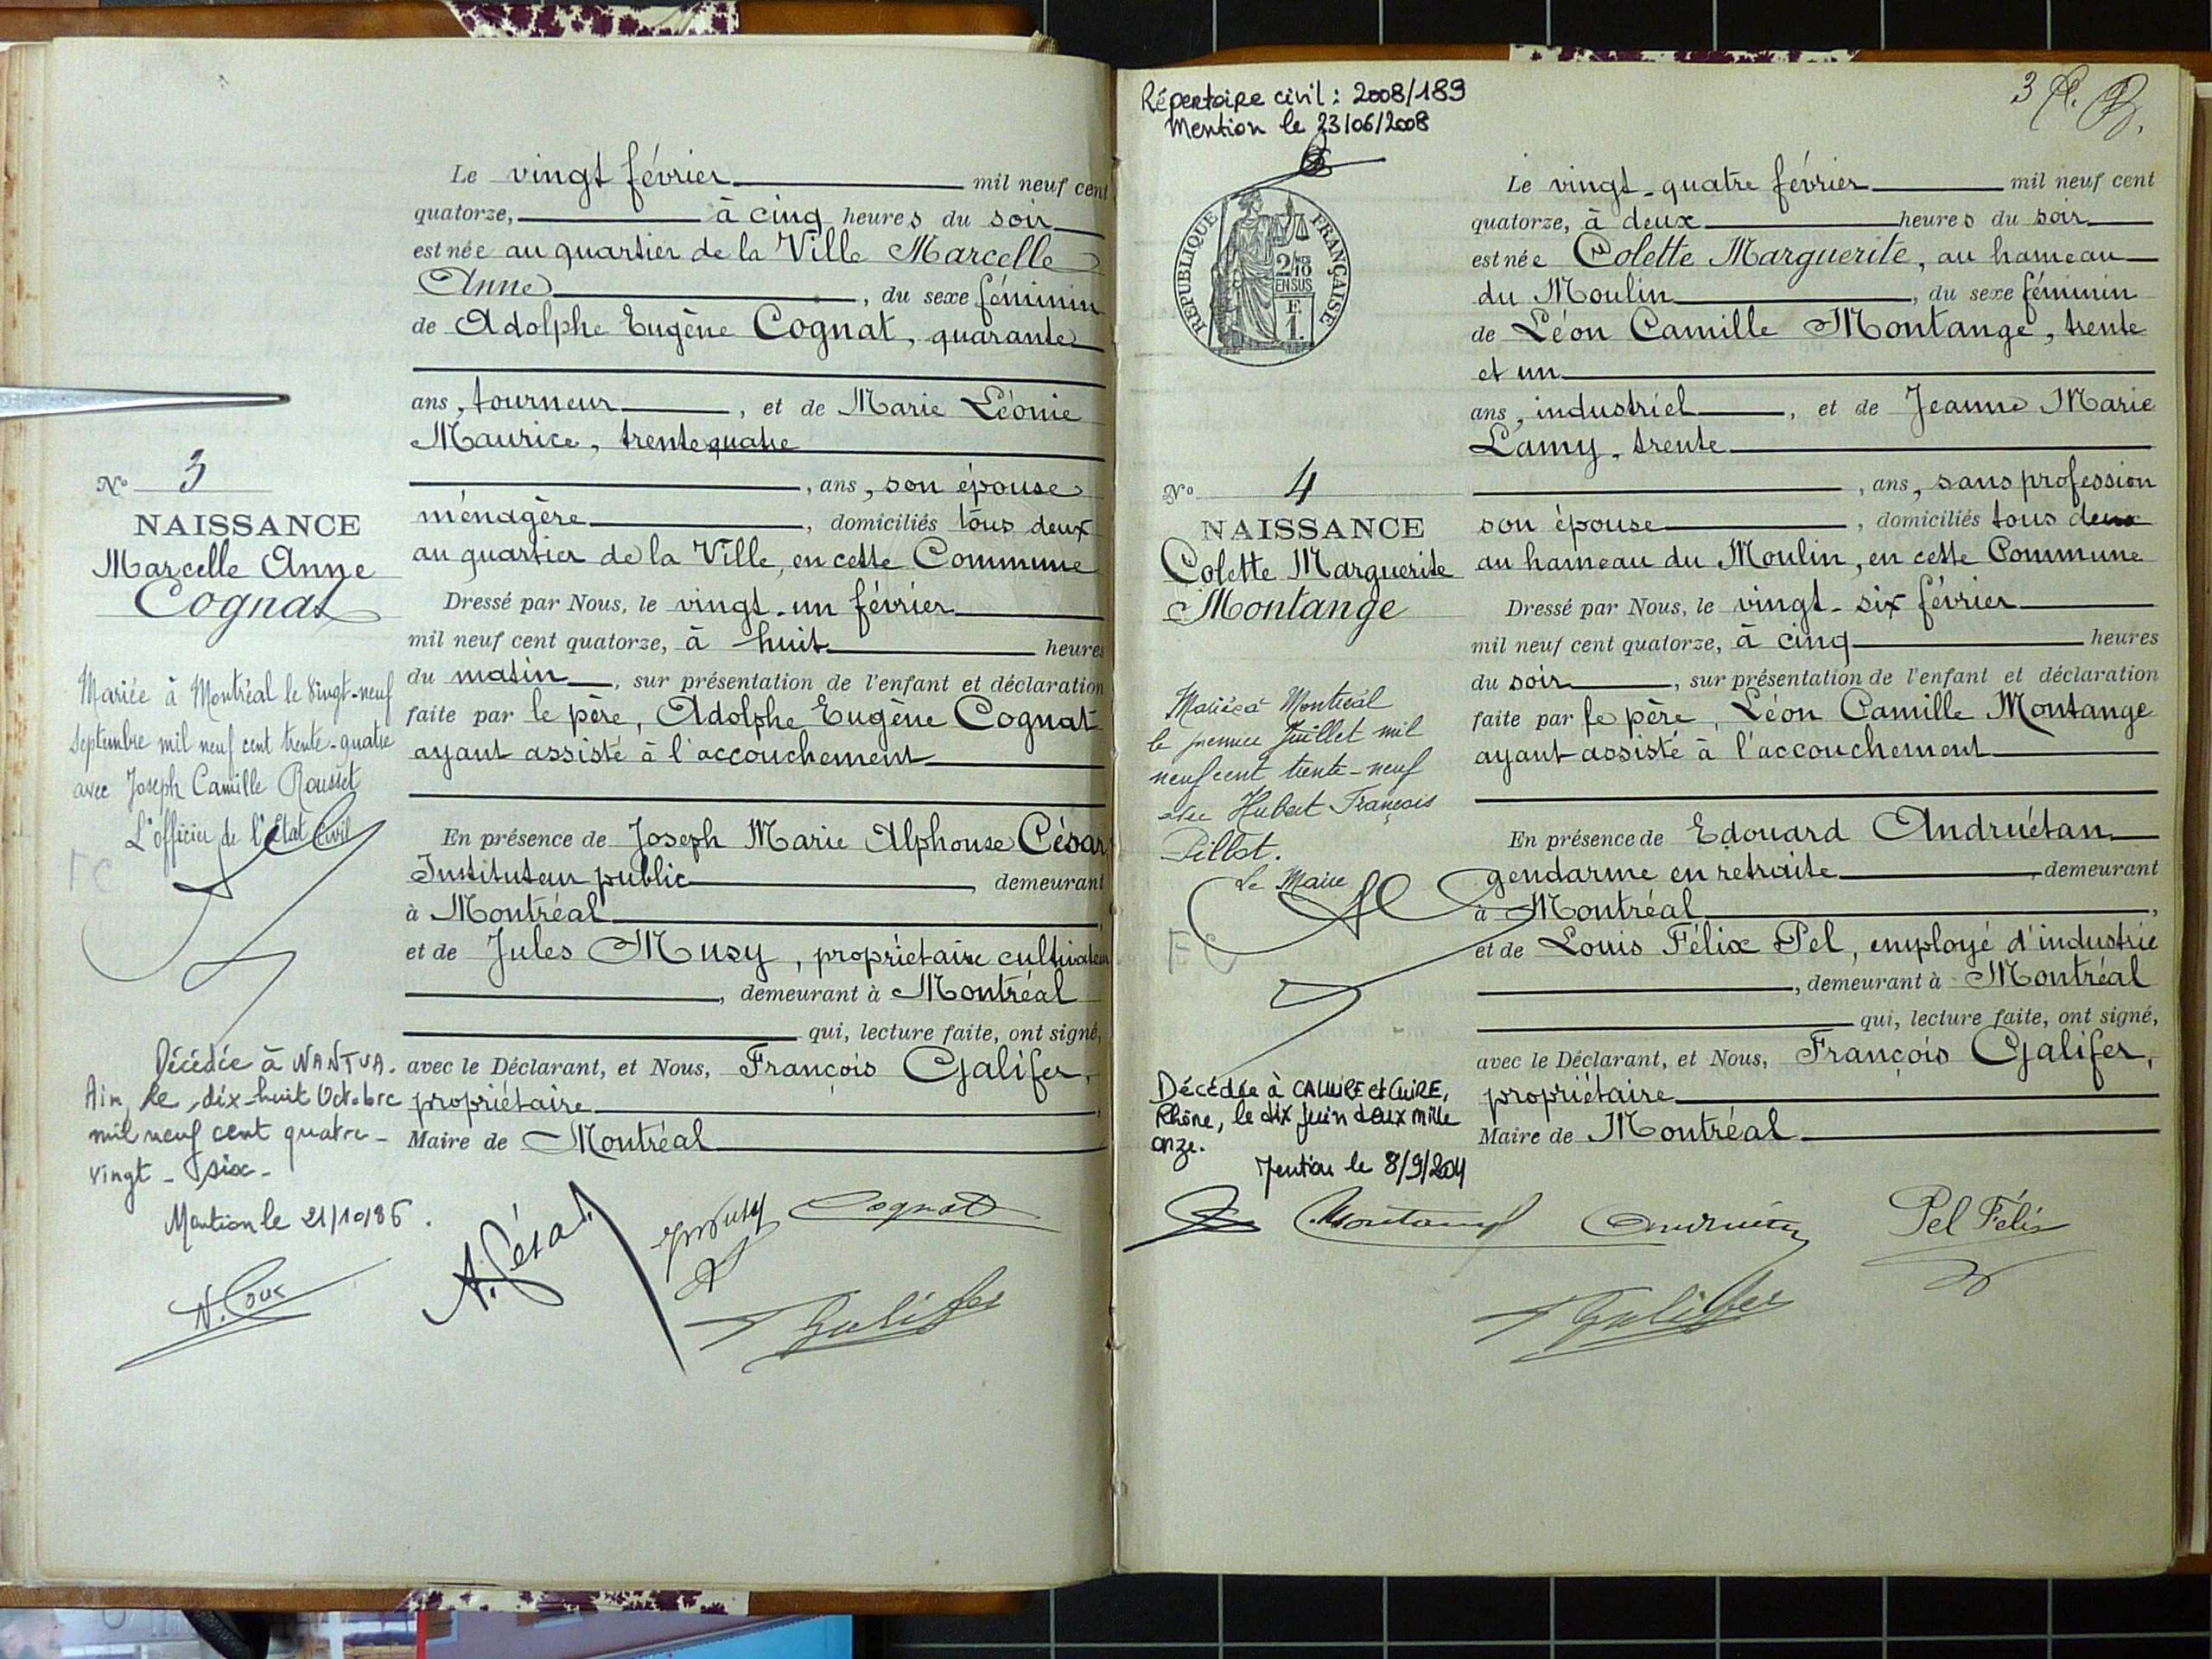 Le vingt février mil neuf cent
quatorze, à cinq heures du soir
est née au quartier de la Ville Marcelle
Anne, du sexe féminin
de Adolphe Eugène Cognat, quarante
ans, tourneur, et de Marie Léonie
Maurice, trente quatre
, ans, son épouse
ménagère, domiciliés tous deux
au quartier de la Ville, en cette Commune
Dressé par Nous, le vingt-un février
mil neuf cent quatorze, à huit heures
du matin, sur présentation de l'enfant et déclaration
faite par le père, Adolphe Eugène Cognat
ayant assisté à l'accouchement
En présence de Joseph Marie Alphonse César
Instituteur public demeurant
à Montréal,
et de Jules Musy, propriétaire cultivateur
, demeurant à Montréal
qui, lecture faite, ont signé,
avec le Déclarant, et Nous, François Galifer,
propriétaire,
Maire de Montréal
No 3
NAISSANCE
Marcelle Anne
Cognat
Mariée à Montréal le vingt-neuf
Septembre mil neuf cent trente-quatre
avec Joseph Camille Rousset
L'officier de l'Etat Civil
FC
Décédée à NANTUA.
Ain, le dix-huit Octobre
mil neuf cent quatre-
vingt-six-
Mention le 21/10/86.
A. César
Cognat
Galifer
Répertoire civil : 2008/189
Mention le 23/06/2008
3
REPUBLIQUE FRANÇAISE
2/10
EN SUS
F.
1.
Le vingt-quatre février mil neuf cent
quatorze, à deux heures du soir
est née Colette Marguerite, au hameau
du Moulin, du sexe féminin
de Léon Camille Montange, trente
et un
ans, industriel, et de Jeanne Marie
Lamy, trente
, ans, sans profession
son épouse, domiciliés tous deux
au hameau du Moulin, en cette Commune
Dressé par Nous, le vingt-six février
mil neuf cent quatorze, à cinq heures
du soir, sur présentation de l'enfant et déclaration
faite par le père, Léon Camille Montange
ayant assisté à l'accouchement
En présence de Edouard Andruétan
gendarme en retraite, demeurant
à Montréal,
et de Louis Félix Pel, employé d'industrie
, demeurant à Montréal
qui, lecture faite, ont signé,
avec le Déclarant, et Nous, François Galifer,
propriétaire
Maire de Montréal
No 4
NAISSANCE
Colette Marguerite
Montange
Mariée à Montréal
le premier Juillet mil
neuf cent trente-neuf
avec Hubert François
Pillot.
Le Maire
FC
Décédée à CALUIRE et CUIRE,
Rhône, le dix juin deux mille
onze.
Mention le 8/9/2011
Montange
Pel Félix
Galifer